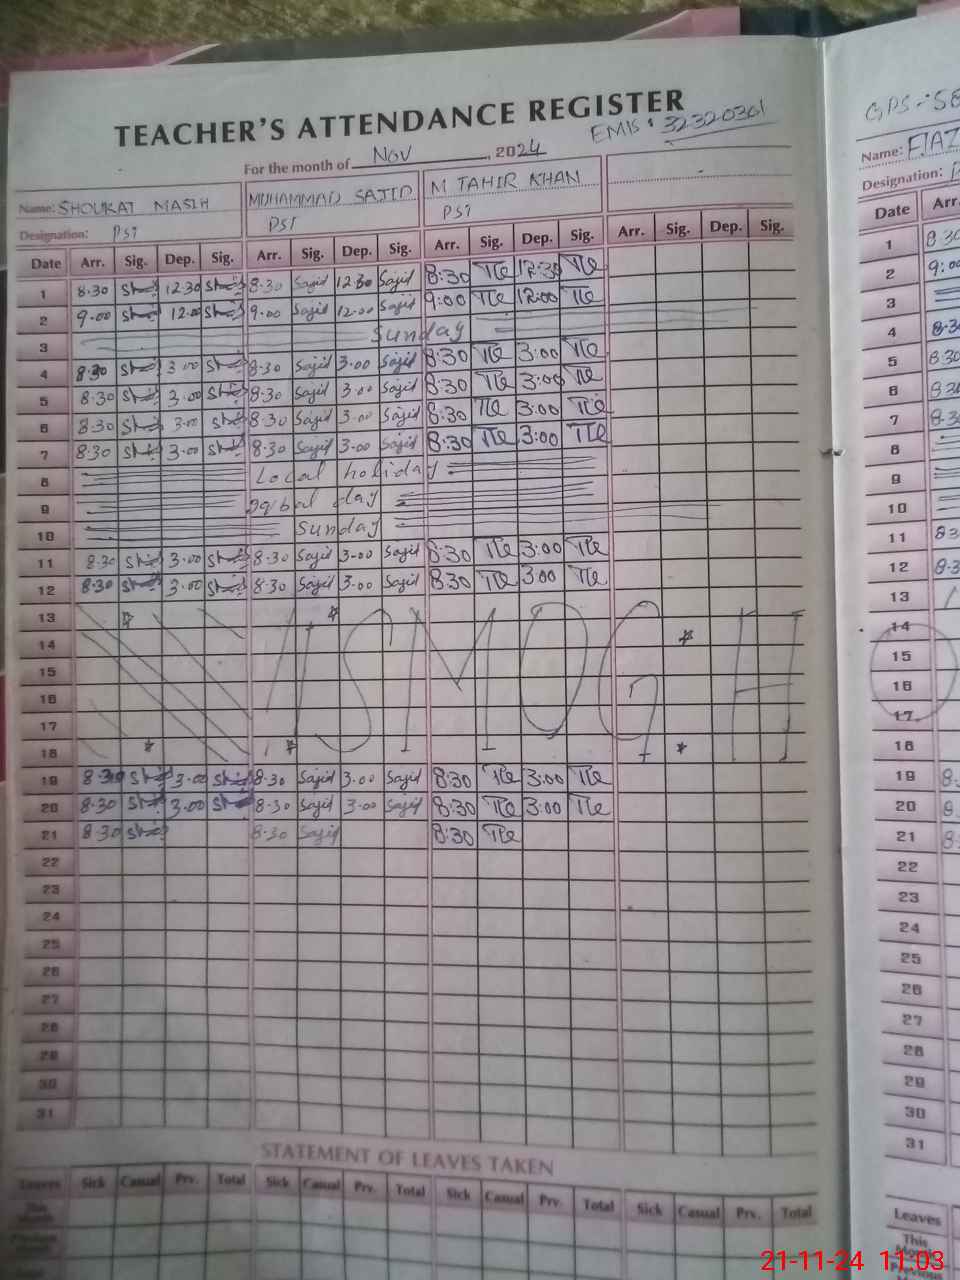 TEACHER'S ATTENDANCE REGISTER
EMIS: 32320301
For the month of NOV, 2024
Name: SHOUKAT MASIH MUHAMMAD SAJID M TAHIR KHAN
Designation: PST PST PST
Date Arr. Sig. Dep. Sig. Arr. Sig. Dep. Sig. Arr. Sig. Dep. Sig. Arr. Sig. Dep. Sig.
1 8.30 12.30 8.30 Sajid 12.30 Sajid 8:30 12:30
2 9.00 12.00 9.00 Sajid 12.00 Sajid 9:00 12:00
3 Sunday
4 8.30 3.00 8.30 Sajid 3.00 Sajid 8:30 3:00
5 8.30 3.00 8.30 Sajid 3.00 Sajid 8:30 3:00
6 8.30 3.00 8.30 Sajid 3.00 Sajid 8:30 3:00
7 8.30 3.00 8.30 Sajid 3.00 Sajid 8:30 3:00
8 Local holiday
9 iqbal day
10 Sunday
11 8.30 3.00 8.30 Sajid 3.00 Sajid 8:30 3:00
12 8.30 3.00 8.30 Sajid 3.00 Sajid 8:30 3:00
13
14
15 SMOG H
16
17
18
19 8.30 3.00 8.30 Sajid 3.00 Sajid 8:30 3:00
20 8.30 3.00 8.30 Sajid 3.00 Sajid 8:30 3:00
21 8.30 8.30 Sajid 8:30
22
23
24
25
26
27
28
29
30
31
STATEMENT OF LEAVES TAKEN
Leaves Sick Casual Prv. Total Sick Casual Prv. Total Sick Casual Prv. Total Sick Casual Prv. Total
This Month
GPS-58
Name: FIAZ
Designation:
Date Arr.
1 8.30
2 9:00
3
4 8.30
5 8.30
6 8.30
7 8.30
8
9
10
11 8.3
12 8.3
13
14
15
16
17
18
19 8.
20 8.
21 8.
22
23
24
25
26
27
28
29
30
31
Leaves
This Month
Previous
21-11-24 11:03